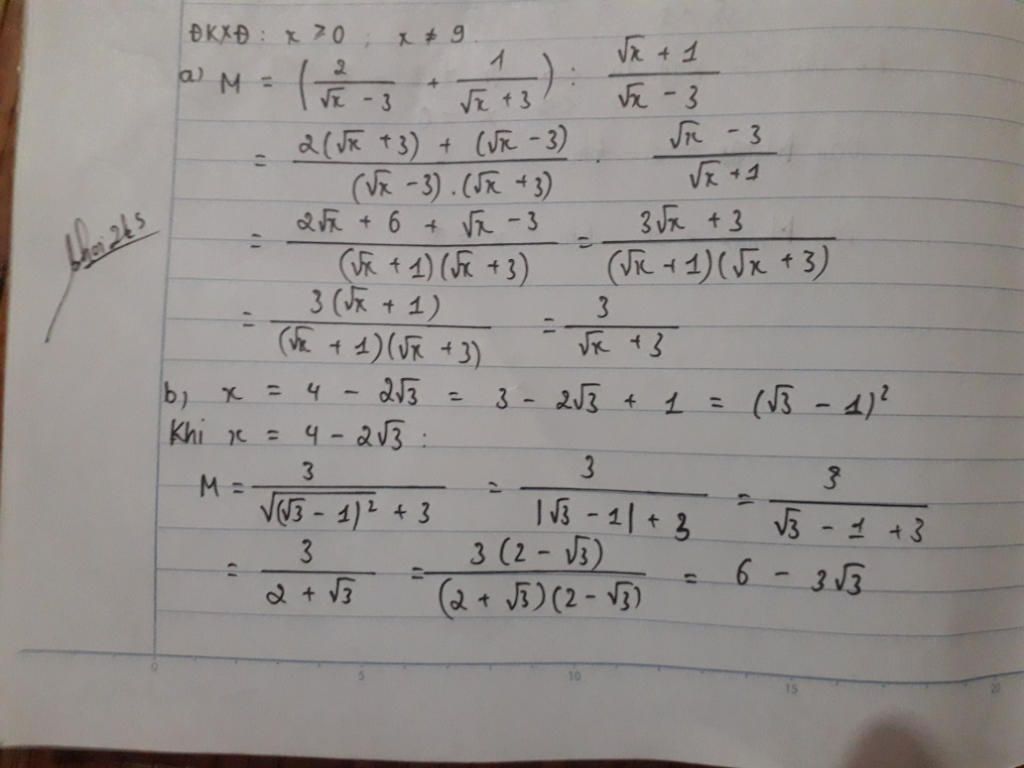 ĐKXĐ: x ≥ 0; x ≠ 9.
a) M = (2/(√x - 3) + 1/(√x + 3)) : (√x + 1)/(√x - 3)
= (2(√x + 3) + (√x - 3))/((√x - 3).(√x + 3)) . (√x - 3)/(√x + 1)
= (2√x + 6 + √x - 3)/((√x + 1)(√x + 3)) = (3√x + 3)/((√x + 1)(√x + 3))
= 3(√x + 1)/((√x + 1)(√x + 3)) = 3/(√x + 3)
b, x = 4 - 2√3 = 3 - 2√3 + 1 = (√3 - 1)²
Khi x = 4 - 2√3 :
M = 3/(√((√3 - 1)²) + 3) = 3/(|√3 - 1| + 3) = 3/(√3 - 1 + 3)
= 3/(2 + √3) = 3(2 - √3)/((2 + √3)(2 - √3)) = 6 - 3√3
0 5 10 15 20